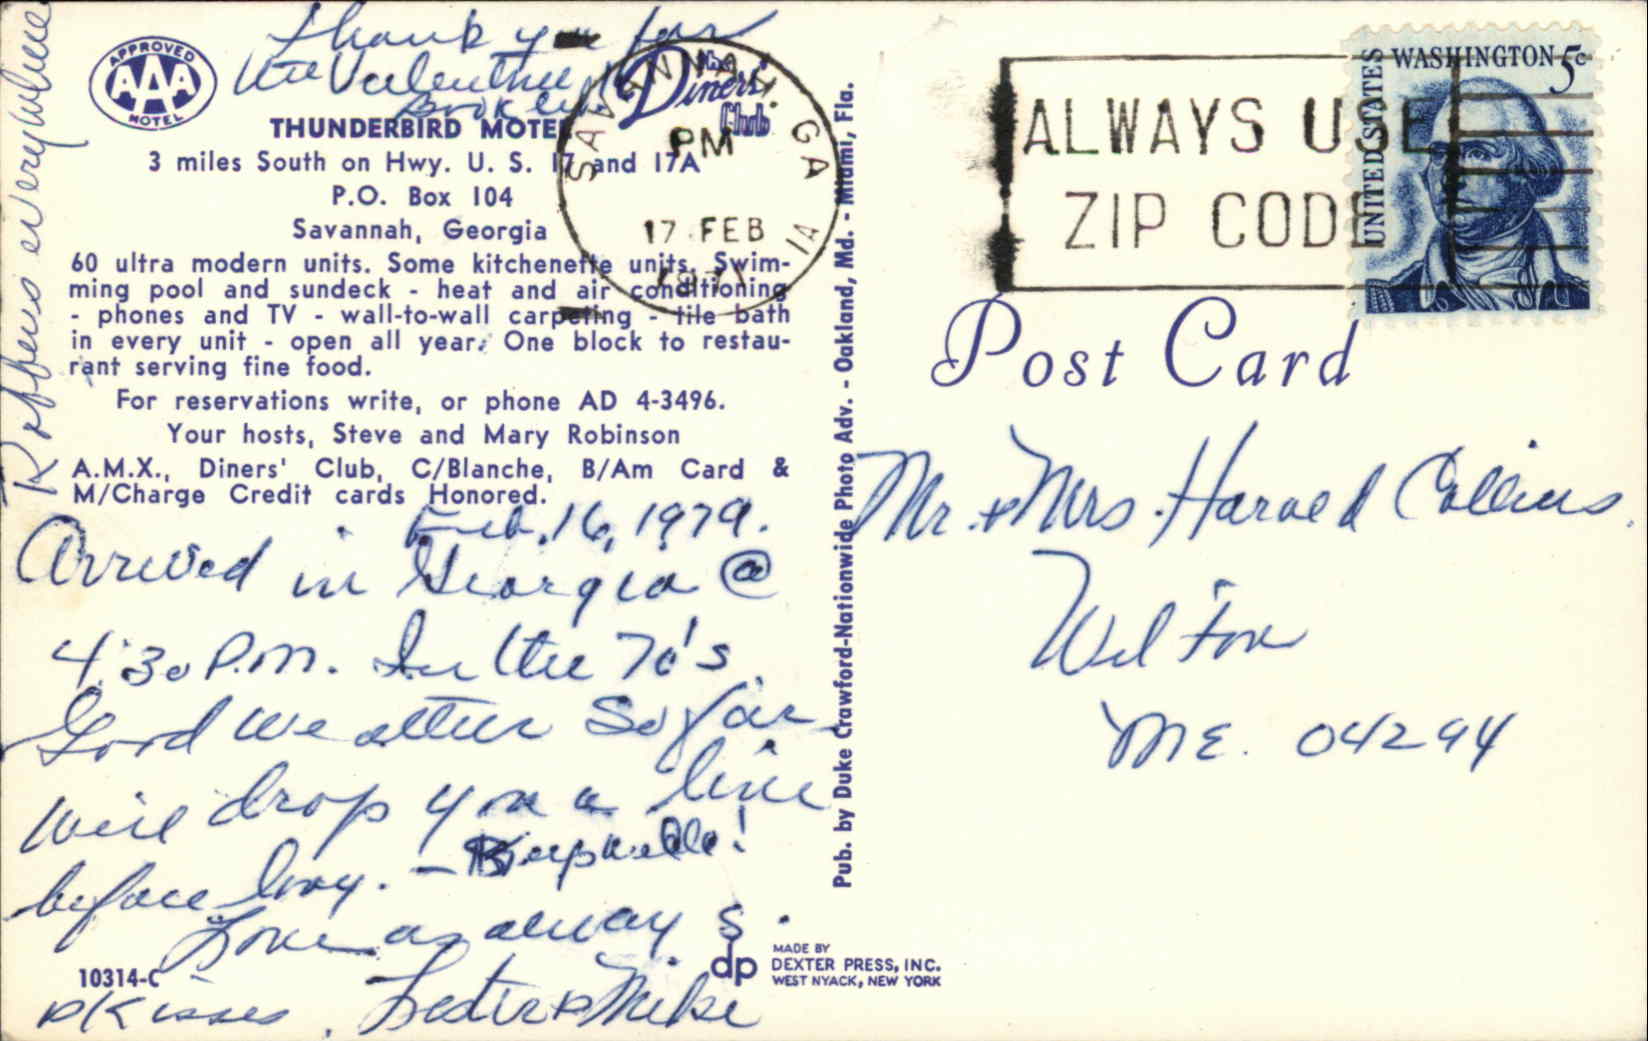 Thank you for
the Valentine
Booklet.
APPROVED
AAA
MOTEL
The
Diners'
Club
THUNDERBIRD MOTEL
3 miles South on Hwy. U. S. 17 and 17A
P.O. Box 104
Savannah, Georgia
60 ultra modern units. Some kitchenette units. Swim-
ming pool and sundeck - heat and air conditioning
- phones and TV - wall-to-wall carpeting - tile bath
in every unit - open all year. One block to restau-
rant serving fine food.
For reservations write, or phone AD 4-3496.
Your hosts, Steve and Mary Robinson
A.M.X., Diners' Club, C/Blanche, B/Am Card &
M/Charge Credit cards Honored.
Feb. 16, 1971.
Arrived in Georgia @
4:30 P.M. In the 70's
Good weather so far
will drop you a line
before long. - Keep well!
Love as always.
& Kisses, Lester & Mike
everywhere
10314-C
SAVANNAH, GA
PM
17 FEB
1971
Pub. by Duke Crawford-Nationwide Photo Adv. - Oakland, Md. - Miami, Fla.
dp
MADE BY
DEXTER PRESS, INC.
WEST NYACK, NEW YORK
ALWAYS USE
ZIP CODE
UNITED STATES
WASHINGTON 5c
Post Card
Mr. & Mrs. Harold Collins
Wilton
ME. 04294